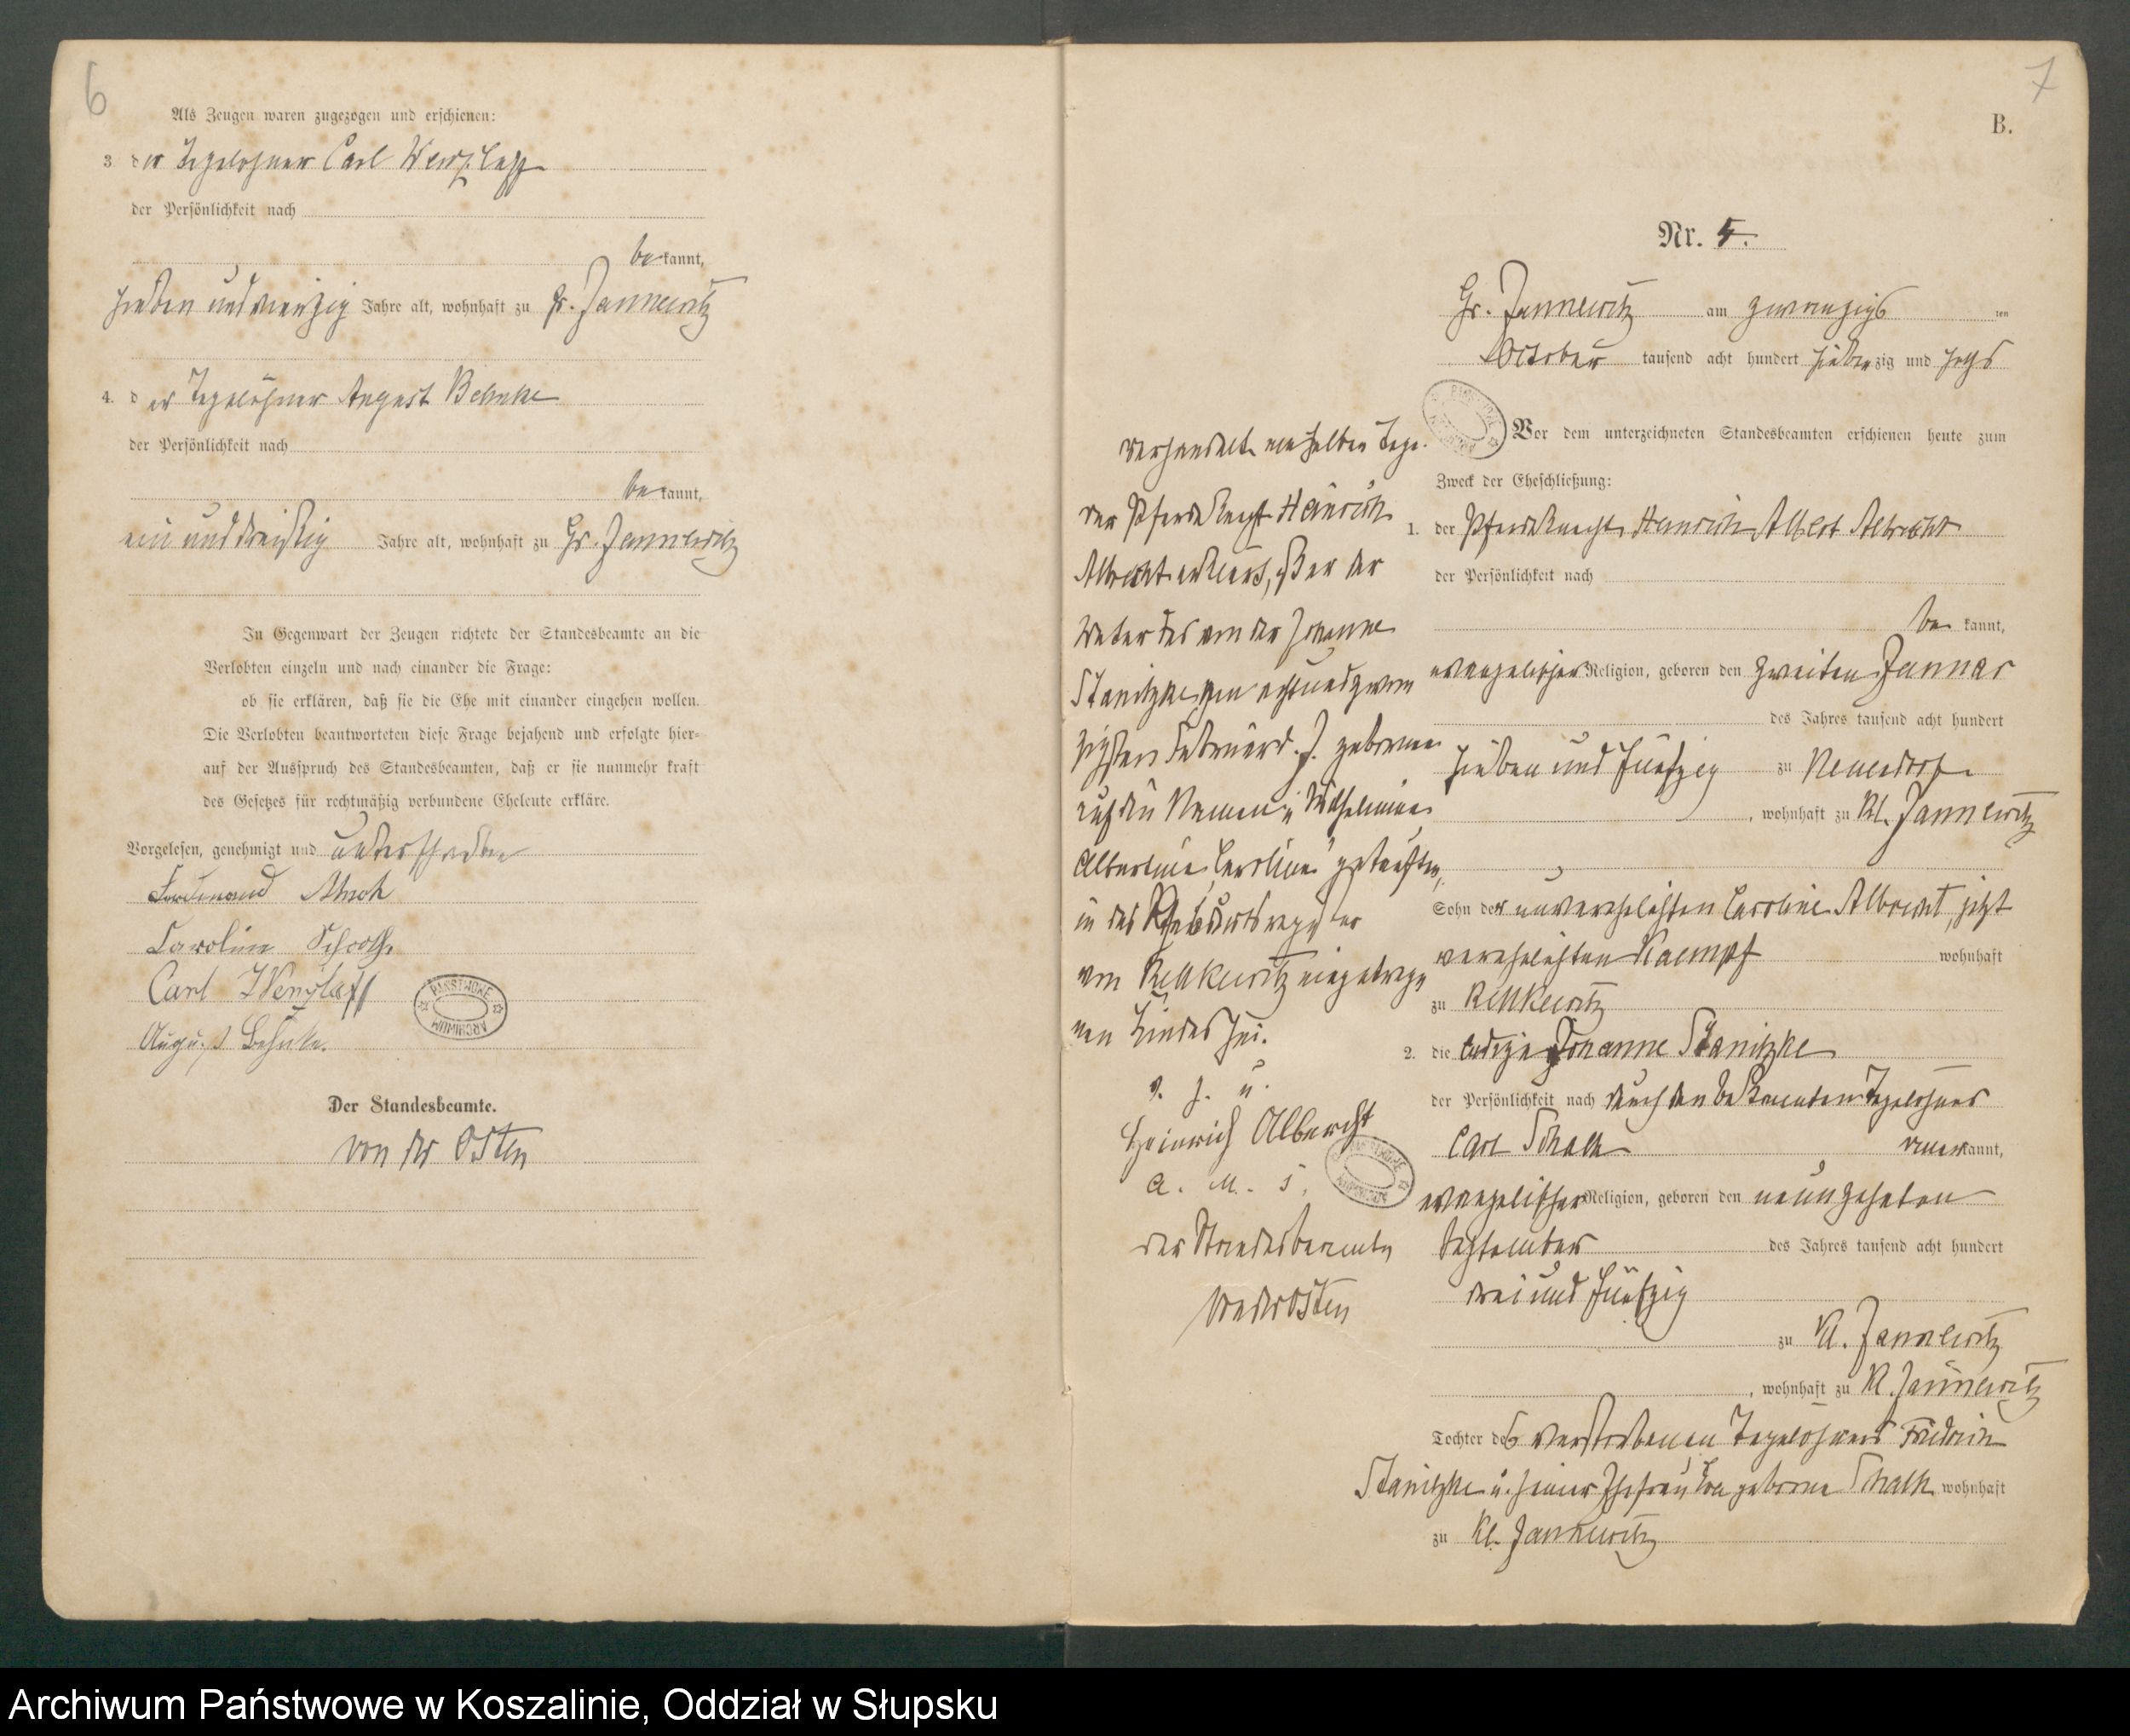 6
Als Zeugen waren zugezogen und erschienen:
3. der Tagelöhner Carl Wenzlaff
der Persönlichkeit nach
bekannt,
sieben und vierzig Jahre alt, wohnhaft zu Gr. Jannewitz
4. der Tagelöhner August Behnke
der Persönlichkeit nach
bekannt,
ein und dreißig Jahre alt, wohnhaft zu Gr. Jannewitz
In Gegenwart der Zeugen richtete der Standesbeamte an die
Verlobten einzeln und nach einander die Frage:
ob sie erklären, daß sie die Ehe mit einander eingehen wollen.
Die Verlobten beantworteten diese Frage bejahend und erfolgte hier-
auf der Ausspruch des Standesbeamten, daß er sie nunmehr kraft
des Gesetzes für rechtmäßig verbundene Eheleute erkläre.
Vorgelesen, genehmigt und unterschrieben
Ferdinand
Carl Wenzlaff
August Behnke.
PAŃSTWOWE ARCHIWUM
Der Standesbeamte.
von der Osten
7
B.
Nr. 5.
Gr. Jannewitz am zwanzigsten
October tausend acht hundert siebenzig und sechs
Vor dem unterzeichneten Standesbeamten erschienen heute zum
Zweck der Eheschließung:
1. der Pferdeknecht Heinrich Albert Albrecht
der Persönlichkeit nach
bekannt,
evangelischer Religion, geboren den zweiten Januar
des Jahres tausend acht hundert
sieben und fünfzig zu Neuendorf
, wohnhaft zu Kl. Jannewitz
Sohn der unverehelichten Caroline Albrecht, jetzt
verehelichten Kaempf wohnhaft
zu Rettkewitz
2. die ledige Johanne Stanitzke
der Persönlichkeit nach durch den bekannten Tagelöhner
Carl Schalk anerkannt,
evangelischer Religion, geboren den neunzehnten
September des Jahres tausend acht hundert
drei und fünfzig
zu Kl. Jannewitz
, wohnhaft zu Kl. Jannewitz
Tochter des verstorbenen Tagelöhners Friedrich
Stanitzke u. seiner Ehefrau geborne Schalk wohnhaft
zu Kl. Jannewitz
Verhandelt am selben Tage.
der Pferdeknecht Heinrich
Albrecht erklärt, daß er der
Vater des von der Johanne
Stanitzke am acht und zwan
zigsten Februar d. J. geborenen
auf den Namen „Wilhelmine
Albertine Caroline" getauften,
in das Geburtsregister
von Rettkewitz eingetrage
nen Kindes sei.
v. g. u.
Heinrich Albrecht
a. u. s.
der Standesbeamte
von der Osten
Archiwum Państwowe w Koszalinie, Oddział w Słupsku